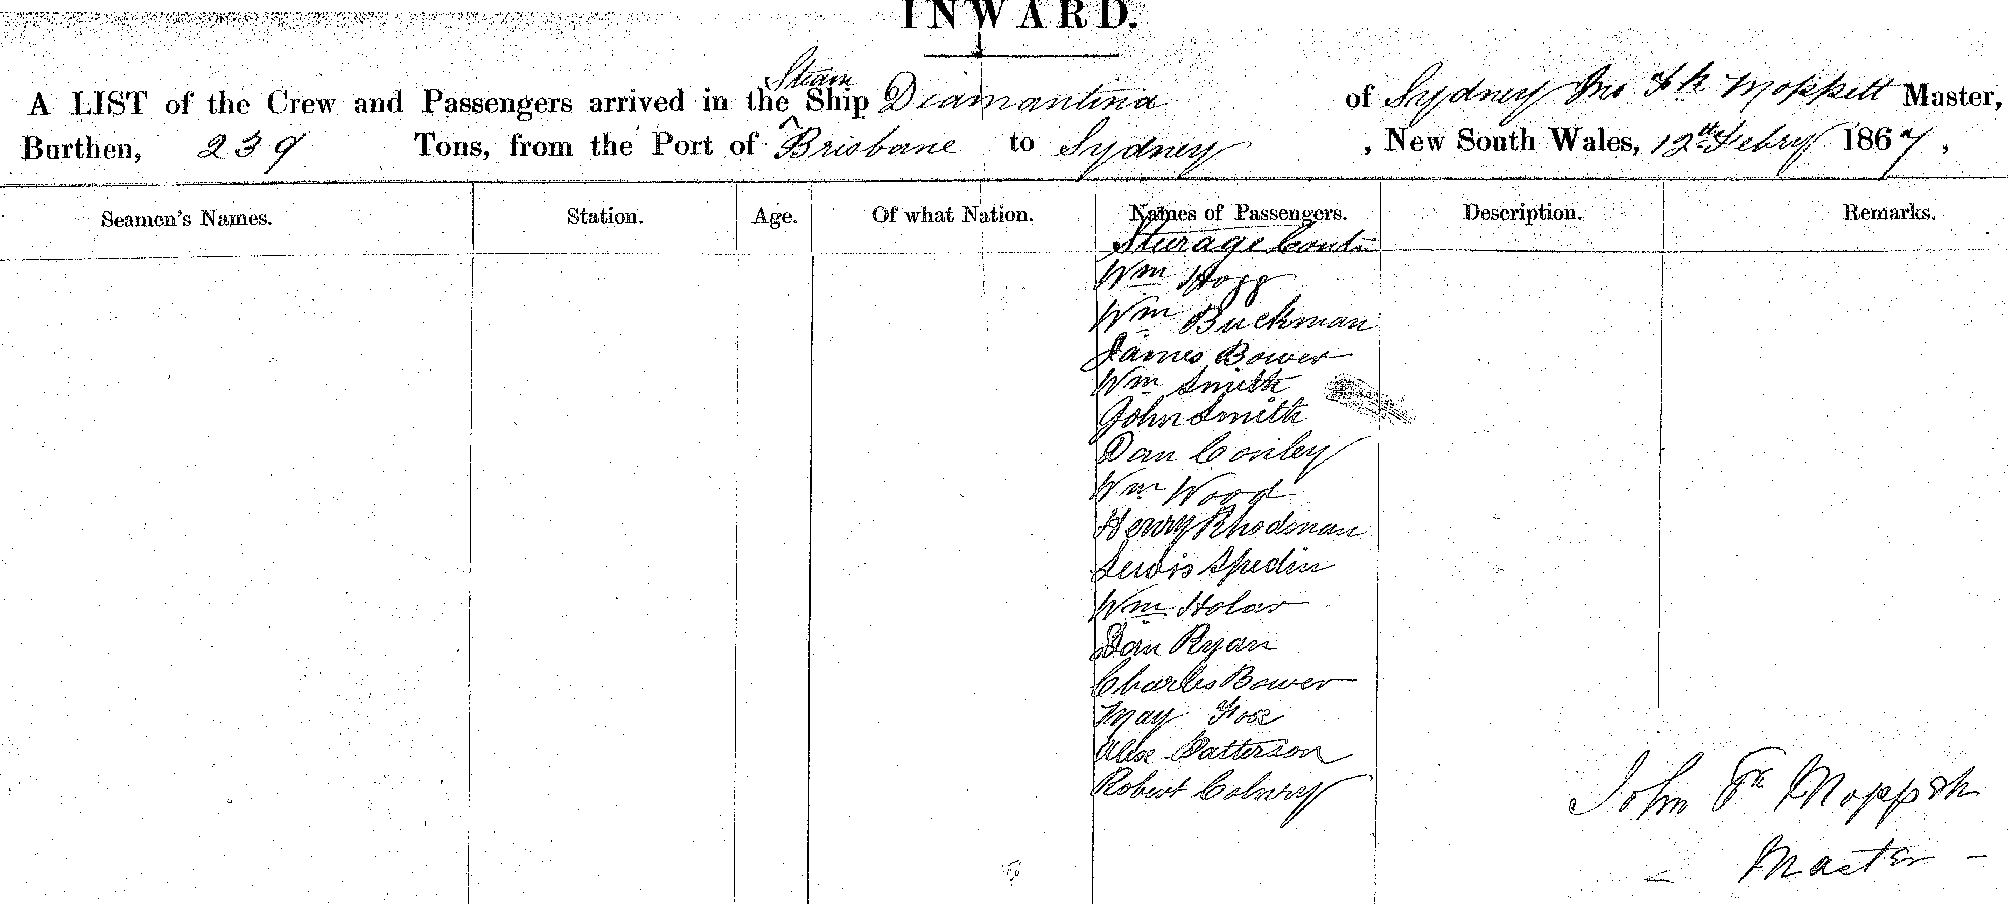 INWARD.
Steam
A LIST of the Crew and Passengers arrived in the Ship Diamantina of Sydney Jno Fk Moppett Master,
Burthen, 239 Tons, from the Port of Brisbane to Sydney , New South Wales, 12th Febry 1867,
Seamen's Names. Station. Age. Of what Nation. Names of Passengers. Description. Remarks.
Sturage Contd
Wm Hogg
Wm Buckman
James Bower
Wm Smith
John Smith
Dan Conley
Wm Wood
Henry Rhodman
Lewis Spedin
Wm Holar
Dan Ryan
Charles Bower
May Fox
Alex Patterson
Robert
John Fk Moppett
Master